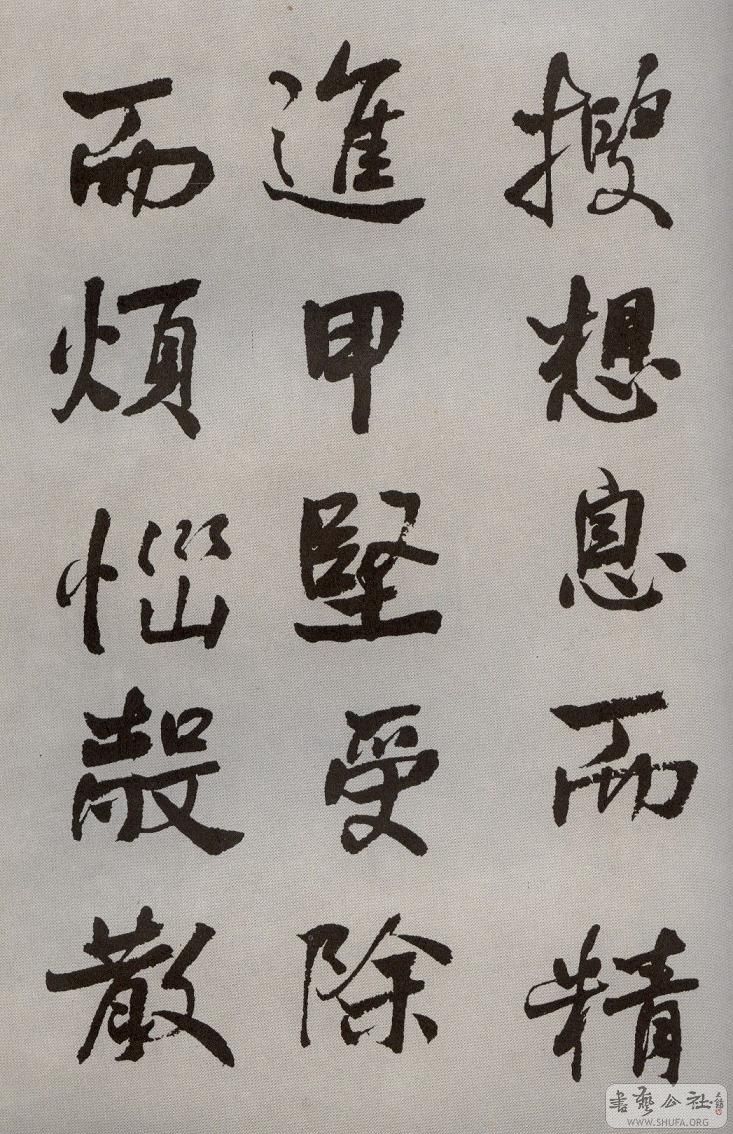 搜想息而精
進甲堅受除
而煩惱殼散
書藝公社
WWW.SHUFA.ORG